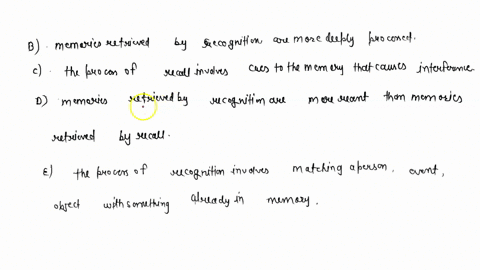 B) . memories retrieved by recognition are more deeply proconed.
C) . the procon of recall involves cues to the memory that causes interference
D) memories retrieved by recognition are more recent than memories
retrieved by recall.
E) the procon of recognition involves matching a person, event,
object with something already in memory.